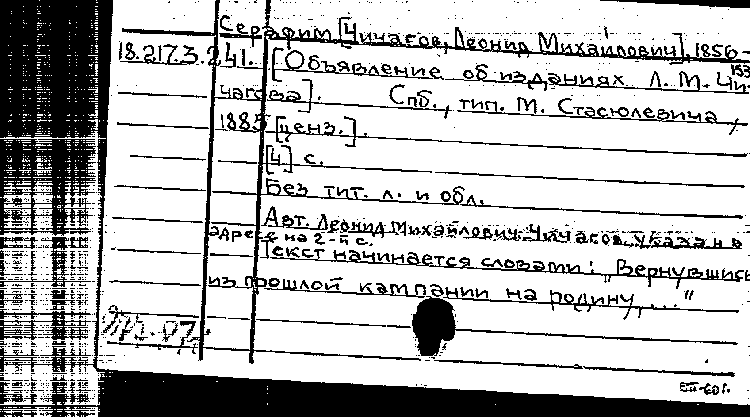 Серафим [Чичагов, Леонид Михайлович], 1856-
18.217.3.241. [Объявление об изданиях Л. М. Чи-
чагова]. Спб., тип. М. Стасюлевича,
1885 [ценз.].
[4] с.
Без тит. л. и обл.
Авт. Леонид Михайлович Чичагов указан в
адресе на 2-й с.
Текст начинается словами: "Вернувшись
из прошлой кампании на родину,..."